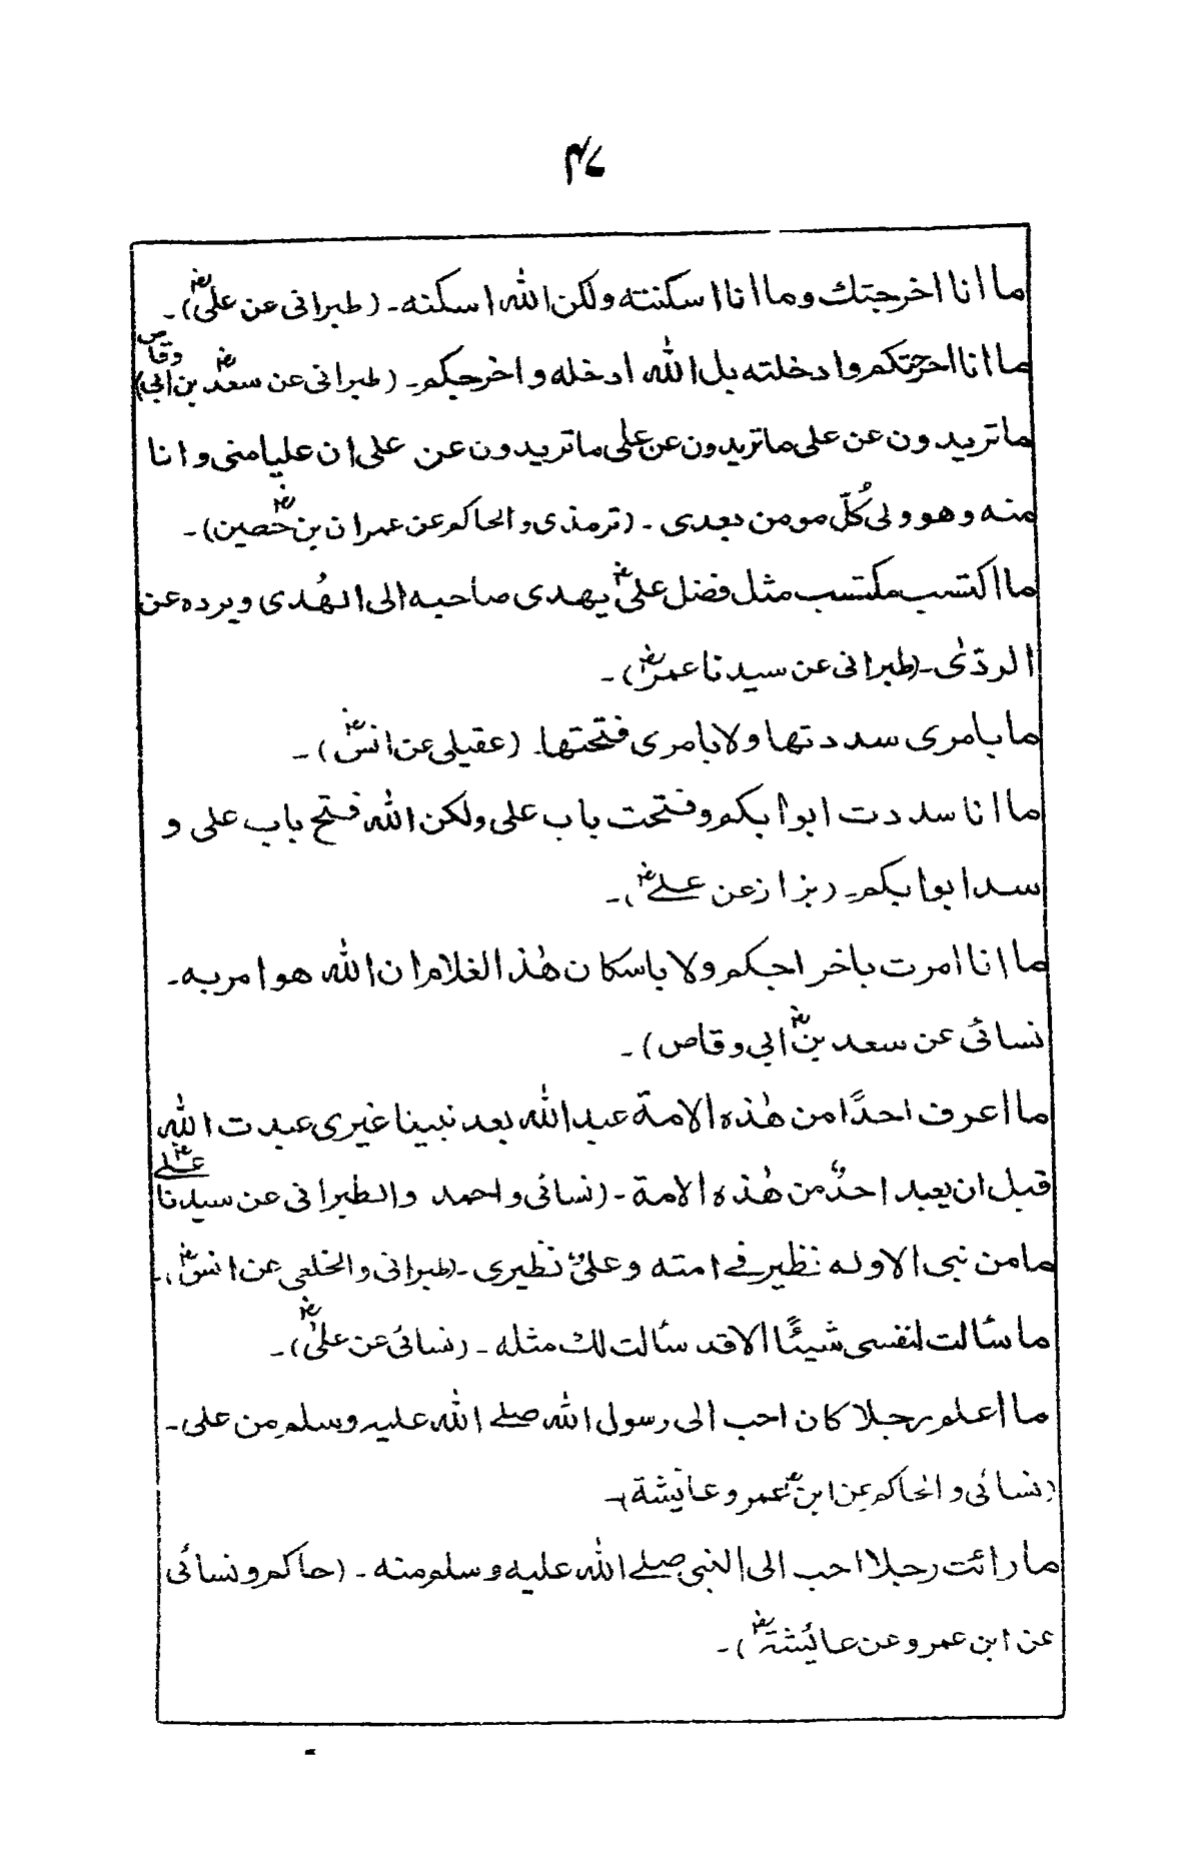 ۴۷
ما انا اخرجتك وما انا اسكنته ولكن الله اسكنه ـ (طبرانی عن علیؓ) ـ
ما انا اخرجتكم وادخلته بل الله ادخله و اخرجكم ـ (طبرانی عن سعدؓ بن ابی وقاص)
ما تريدون عن علی ما تريدون عن علی ما تريدون عن علی ان عليا منی و انا
منه و هو ولی كُلّ مومن بعدی ـ (ترمذی و الحاكم عن عمران بن حُصينؓ) ـ
ما اكتسب مكتسب مثل فضل علیؓ يهدی صاحبه الی الهُدی و يرده عن
الردّیٰ ـ (طبرانی عن سيدنا عمرؓ) ـ
ما بامری سددتها ولا بامری فتحتها ـ (عقيلی عن انسؓ) ـ
ما انا سددت ابوابكم و فتحت باب علی ولكن الله فتح باب علی و
سد ابوابكم ـ (بزاز عن علےؓ) ـ
ما انا امرت باخراجكم ولا باسكان هٰذا الغلام ان الله هو امر به ـ
نسائی عن سعد بنؓ ابی وقاص) ـ
ما اعرف احدًا من هٰذه الامة عبد الله بعد نبينا غيری عبدت الله
قبل ان يعبد احدٌ من هٰذه الامة ـ (نسائی و احمد والطبرانی عن سيدنا علےؓ
ما من نبی الا وله نظير فے امته و علیٌ نظيری ـ (طبرانی و الخلعی عن انسؓ) ـ
ما سألت لنفسی شيئًا الا قد سألت لك مثله ـ (نسائی عن علیؓ) ـ
ما اعلم رجلا كان احب الی رسول الله صلے الله عليه وسلم من علی ـ
(نسائی و الحاكم عن ابنؓ عمر و عائشة) ـ
ما رائت رجلا احب الی النبی صلے الله عليه وسلم منه ـ (حاكم و نسائی
عن ابن عمر و عن عائشةؓ) ـ